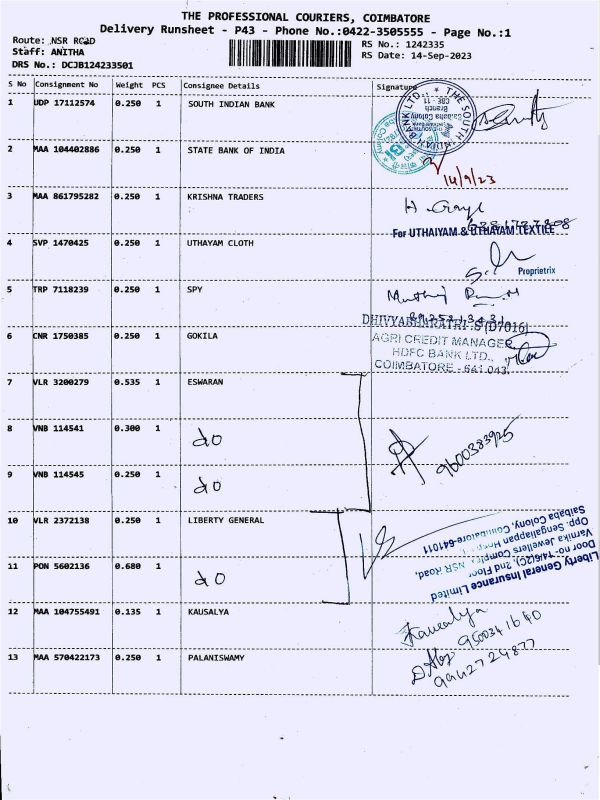 THE PROFESSIONAL COURIERS, COIMBATORE
Delivery Runsheet - P43 - Phone No.:0422-3505555 - Page No.:1
Route: NSR ROAD
Staff: ANITHA
DRS No.: DCJB124233501
RS No.: 1242335
RS Date: 14-Sep-2023
S No Consignment No Weight PCS Consignee Details Signature
1 UDP 17112574 0.250 1 SOUTH INDIAN BANK
THE SOUTH BANK LTD. Saibaba Colony Branch CBE - 11
2 MAA 104402886 0.250 1 STATE BANK OF INDIA
14/9/23
3 MAA 861795282 0.250 1 KRISHNA TRADERS
For UTHAIYAM & UTHAYAM TEXTILE
4 SVP 1470425 0.250 1 UTHAYAM CLOTH
Proprietrix
5 TRP 7118239 0.250 1 SPY
DHIVYABHARATHI .S (D7016)
6 CNR 1750385 0.250 1 GOKILA
AGRI CREDIT MANAGER
HDFC BANK LTD.,
COIMBATORE - 641 043
7 VLR 3200279 0.535 1 ESWARAN
8 VNB 114541 0.300 1 do
9600383925
9 VNB 114545 0.250 1 do
10 VLR 2372138 0.250 1 LIBERTY GENERAL
Liberty General Insurance Limited
Door no- 14/6(2C), 2nd Floor
Varnika Jewellers Complex, NSR Road,
Opp. Sengaliappan
Saibaba Colony, Coimbatore-641011
11 PON 5602136 0.680 1 do
12 MAA 104755491 0.135 1 KAUSALYA
Kausalya
9500341640
13 MAA 570422173 0.250 1 PALANISWAMY
9442724877